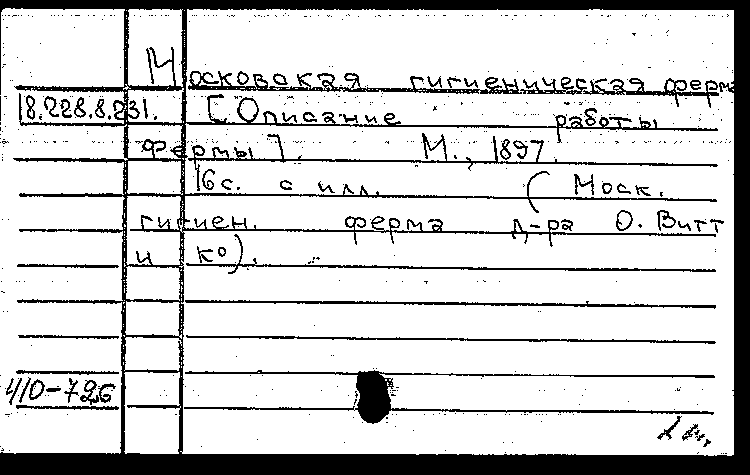 Московская гигиеническая ферма
18.228.8.231. [Описание работы
фермы]. М., 1897.
16с. с илл. (Моск.
гигиен. ферма д-ра О. Витт
и ко).
410-72б